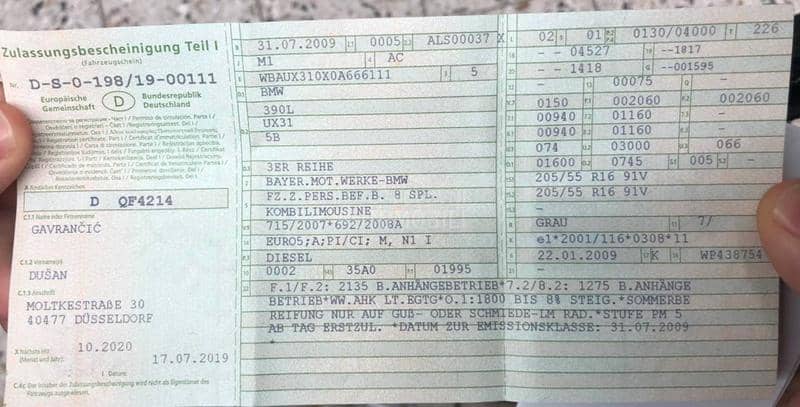 Zulassungsbescheinigung Teil I
(Fahrzeugschein)
Nr. D-S-0-198/19-00111
Europäische Gemeinschaft
D
Bundesrepublik Deutschland
A Amtliches Kennzeichen
D QF4214
C.1.1 Name oder Firmenname
GAVRANČIĆ
C.1.2 Vorname(n)
DUŠAN
C.1.3 Anschrift
MOLTKESTRAßE 30
40477 DÜSSELDORF
10.2020
17.07.2019
I Datum:
C.4c Der Inhaber der Zulassungsbescheinigung wird nicht als Eigentümer des
Fahrzeugs ausgewiesen.
31.07.2009 0005 ALS00037 X
M1 AC
WBAUX310X0A666111 5
BMW
390L
UX31
5B
3ER REIHE
BAYER.MOT.WERKE-BMW
FZ.Z.PERS.BEF.B. 8 SPL.
KOMBILIMOUSINE
715/2007*692/2008A
EURO5;A;PI/CI; M, N1 I
DIESEL
0002 35A0 01995
02 01 0130/04000 226
- - 04527 --1817
- - 1418 --001595
- 00075 -
0150 002060 002060
00940 01160 -
00940 01160 -
074 03000 066
01600 0745 005 -
205/55 R16 91V
205/55 R16 91V
-
GRAU 7/
e1*2001/116*0308*11
22.01.2009 K WP438754
-
F.1/F.2: 2135 B.ANHÄNGEBETRIEB*7.2/8.2: 1275 B.ANHÄNGE
BETRIEB*WW.AHK LT.EGTG*O.1:1800 BIS 8% STEIG.*SOMMERBE
REIFUNG NUR AUF GUß- ODER SCHMIEDE-LM RAD.*STUFE PM 5
AB TAG ERSTZUL. *DATUM ZUR EMISSIONSKLASSE: 31.07.2009
*